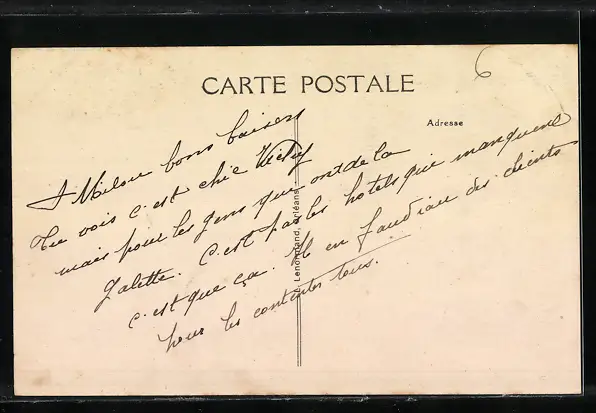 CARTE POSTALE
6
Adresse
Milou bons baisers
Tu vois c'est chic Vichy
mais pour les gens qui ont de la
galette. C'est pas les hotels qui manquent
c'est que ça. Il en faudrait des clients
pour les contenter tous.
Lenormand, Orléans